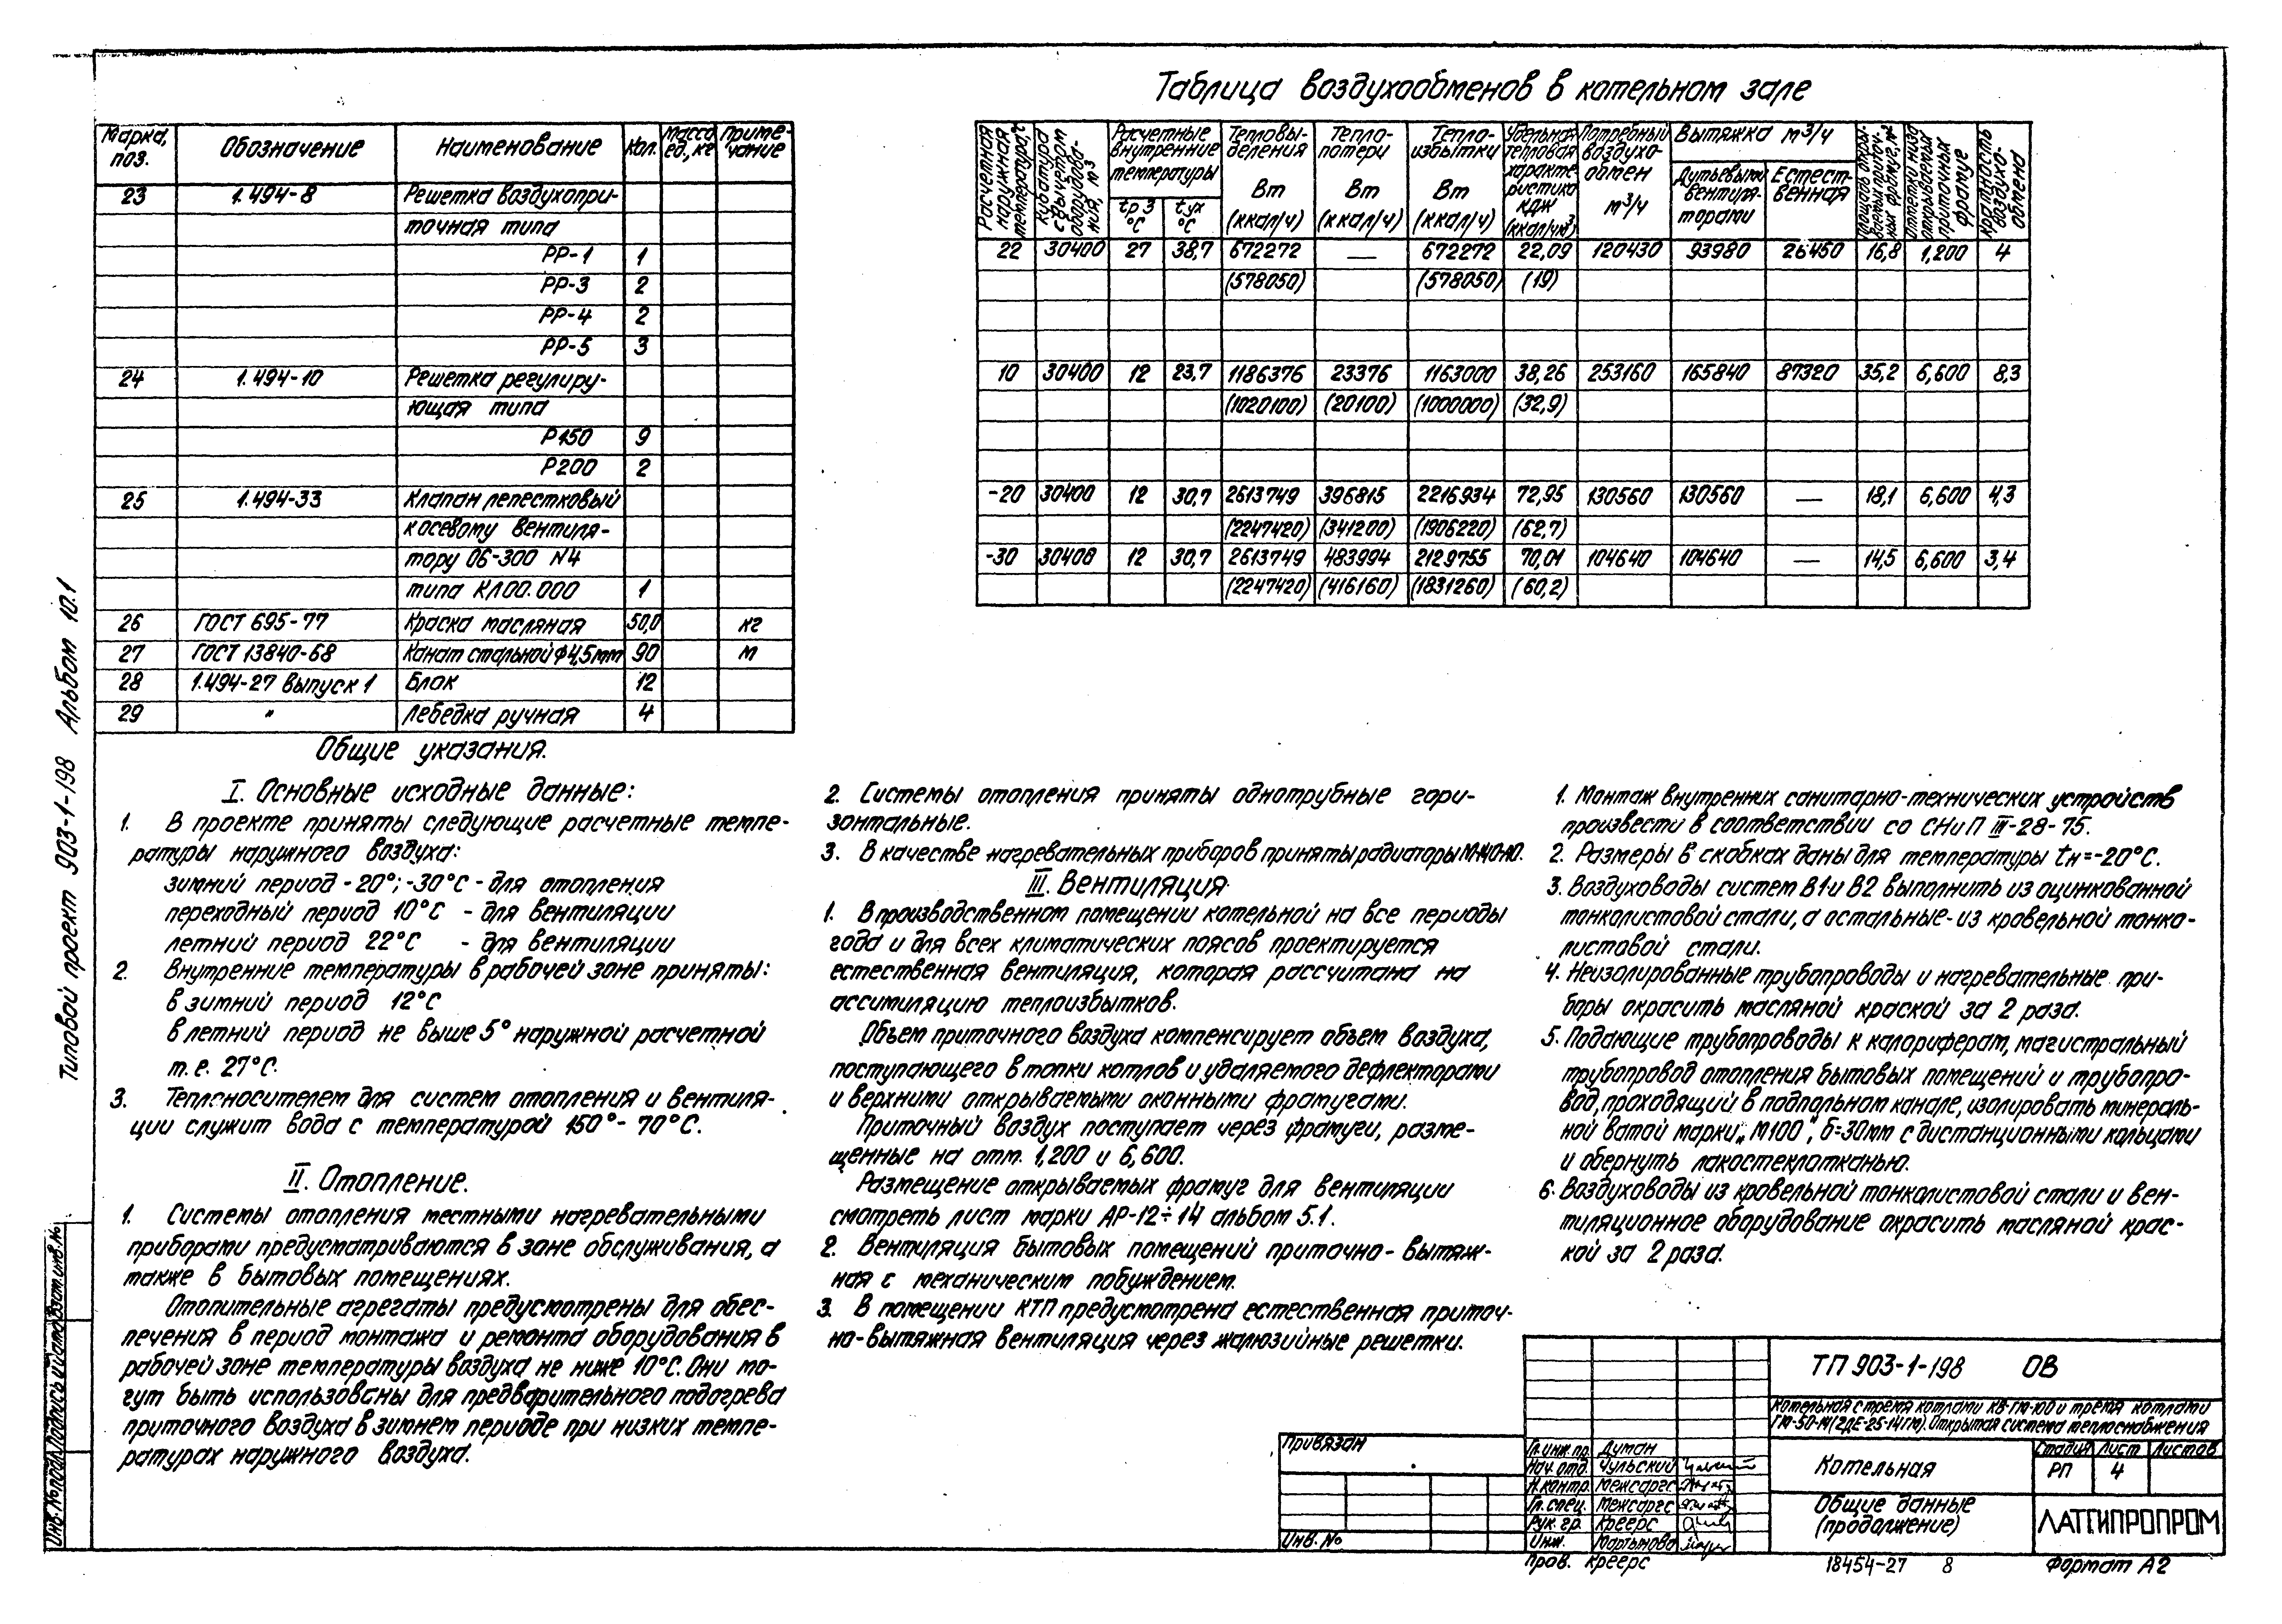 Таблица воздухообменов в котельном зале
Марка, поз. Обозначение Наименование Кол. Масса ед., кг Приме-чание
23 1.494-8 Решетка воздухопри-
точная типа
РР-1 1
РР-3 2
РР-4 2
РР-5 3
24 1.494-10 Решетка регулиру-
ющая типа
Р150 9
Р200 2
25 1.494-33 Клапан лепестковый
косевому вентиля-
тору 06-300 №4
типа КЛ00.000 1
26 ГОСТ 695-77 Краска масляная 50,0 кг
27 ГОСТ 13840-68 Канат стальной ф4,5мм 90 м
28 1.494-27 выпуск 1 Блок 12
29 " Лебедка ручная 4
Расчетная наружная температура, °С
Кубатура с вычетом оборудова-ния, м3
Расчетные внутренние температуры
tр.з °С
tух °С
Тепловы-деления Вт (ккал/ч)
Тепло-потери Вт (ккал/ч)
Тепло-избытки Вт (ккал/ч)
Удельная тепловая характе-ристика КДЖ (ккал/чм3)
Потребный воздухо-обмен м3/ч
Вытяжка м3/ч
Дутьевыми вентиля-торами
Естест-венная
Площадь откры-ваемых приточ-ных фрамуг, м2
Отметки низа открываемых приточных фрамуг
Кратность воздухо-обмена
22 30400 27 38,7 672272 — 672272 22,09 120430 93980 26450 16,8 1,200 4
(578050) (578050) (19)
10 30400 12 23,7 1186376 23376 1163000 38,26 253160 165840 87320 35,2 6,600 8,3
(1020100) (20100) (1000000) (32,9)
-20 30400 12 30,7 2613749 396815 2216934 72,95 130560 130560 — 18,1 6,600 4,3
(2247420) (341200) (1906220) (62,7)
-30 30400 12 30,7 2613749 483994 2129755 70,01 104640 104640 — 14,5 6,600 3,4
(2247420) (416160) (1831260) (60,2)
Общие указания.
I. Основные исходные данные:
1. В проекте приняты следующие расчетные темпе-
ратуры наружного воздуха:
зимний период -20°; -30°С - для отопления
переходный период 10°С - для вентиляции
летний период 22°С - для вентиляции
2. Внутренние температуры в рабочей зоне приняты:
в зимний период 12°С
в летний период не выше 5° наружной расчетной
т.е. 27°С.
3. Теплоносителем для систем отопления и вентиля-
ции служит вода с температурой 150°- 70°С.
II. Отопление.
1. Системы отопления местными нагревательными
приборами предусматриваются в зоне обслуживания, а
также в бытовых помещениях.
Отопительные агрегаты предусмотрены для обес-
печения в период монтажа и ремонта оборудования в
рабочей зоне температуры воздуха не ниже 10°С. Они мо-
гут быть использованы для предварительного подогрева
приточного воздуха в зимнем периоде при низких темпе-
ратурах наружного воздуха.
2. Системы отопления приняты однотрубные гори-
зонтальные.
3. В качестве нагревательных приборов приняты радиаторы М-140-АО.
III. Вентиляция.
1. В производственном помещении котельной на все периоды
года и для всех климатических поясов проектируется
естественная вентиляция, которая рассчитана на
ассимиляцию теплоизбытков.
Объем приточного воздуха компенсирует объем воздуха,
поступающего в топки котлов и удаляемого дефлекторами
и верхними открываемыми оконными фрамугами.
Приточный воздух поступает через фрамуги, разме-
щенные на отм. 1,200 и 6,600.
Размещение открываемых фрамуг для вентиляции
смотреть лист марки АР-12÷14 альбом 5.1.
2. Вентиляция бытовых помещений приточно-вытяж-
ная с механическим побуждением.
3. В помещении КТП предусмотрена естественная приточ-
но-вытяжная вентиляция через жалюзийные решетки.
1. Монтаж внутренних санитарно-технических устройств
произвести в соответствии со СНиП III-28-75.
2. Размеры в скобках даны для температуры tн=-20°С.
3. Воздуховоды систем В1 и В2 выполнить из оцинкованной
тонколистовой стали, а остальные- из кровельной тонко-
листовой стали.
4. Неизолированные трубопроводы и нагревательные при-
боры окрасить масляной краской за 2 раза.
5. Подающие трубопроводы к калориферам, магистральный
трубопровод отопления бытовых помещений и трубопро-
вод, проходящий в подпольном канале, изолировать минераль-
ной ватой марки „М100", δ=30мм с дистанционными кольцами
и обернуть лакостеклотканью.
6. Воздуховоды из кровельной тонколистовой стали и вен-
тиляционное оборудование окрасить масляной крас-
кой за 2 раза.
Типовой проект 903-1-198 Альбом 10.1
Инв. № подл. Подпись и дата Взам. инв. №
Привязан
Инв. №
Гл. инж. пр. Думан
Нач. отд. Чульский
Н. контр. Межсаргс
Гл. спец. Межсаргс
Рук. гр. Креерс
Инж. Мартынова
Пров. Креерс
ТП 903-1-198 ОВ
Котельная с тремя котлами КВ-ГМ-100 и тремя котлами
ГМ-50-14 (2ДЕ-25-14ГМ). Открытая система теплоснабжения
Котельная
Стадия Лист Листов
РП 4
Общие данные
(продолжение)
ЛАТГИПРОПРОМ
18454-27 8
Формат А2